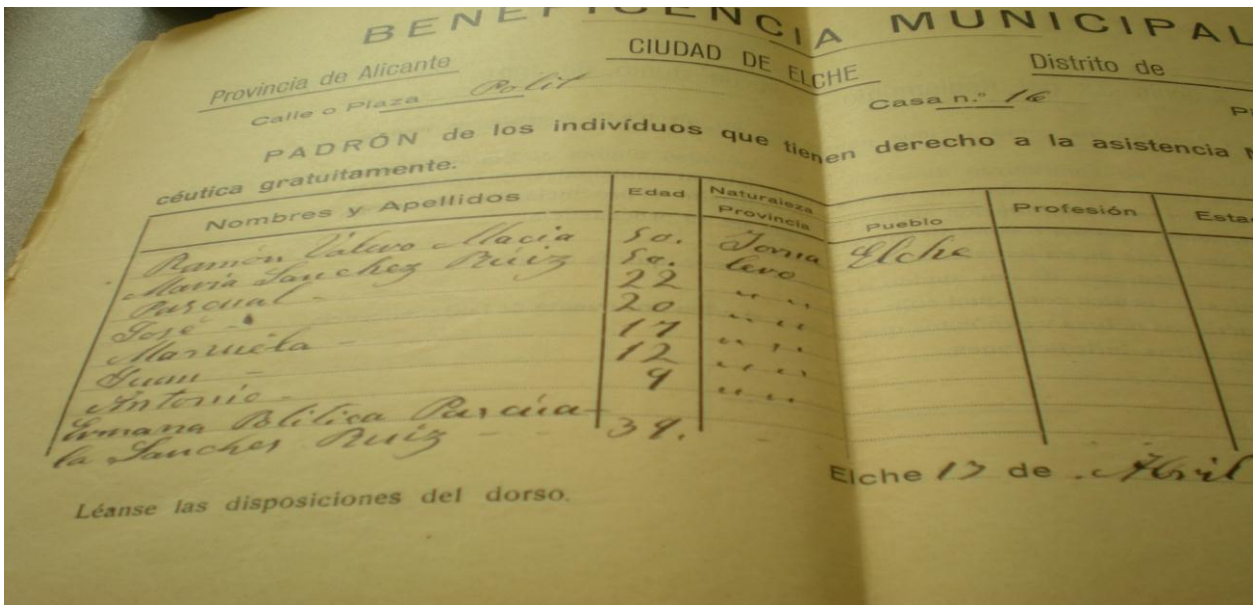 BENEFICENCIA MUNICIPAL
Provincia de Alicante CIUDAD DE ELCHE Distrito de
Calle o Plaza Polit Casa n.º 16 P
PADRÓN de los indivíduos que tienen derecho a la asistencia
céutica gratuitamente.
Nombres y Apellidos Edad Naturaleza Provincia Pueblo Profesión Esta
Ramón Valero Macia 50. Jorna Elche
Maria Sanchez Ruiz 50. lero
Pascual - 22 " "
José - 20 " "
Manuela - 17 " "
Juan - 12 " "
Antonio - 9 " "
Ermana Política Pascua-
la Sanches Ruiz - - 39.
Elche 17 de Abril
Léanse las disposiciones del dorso.